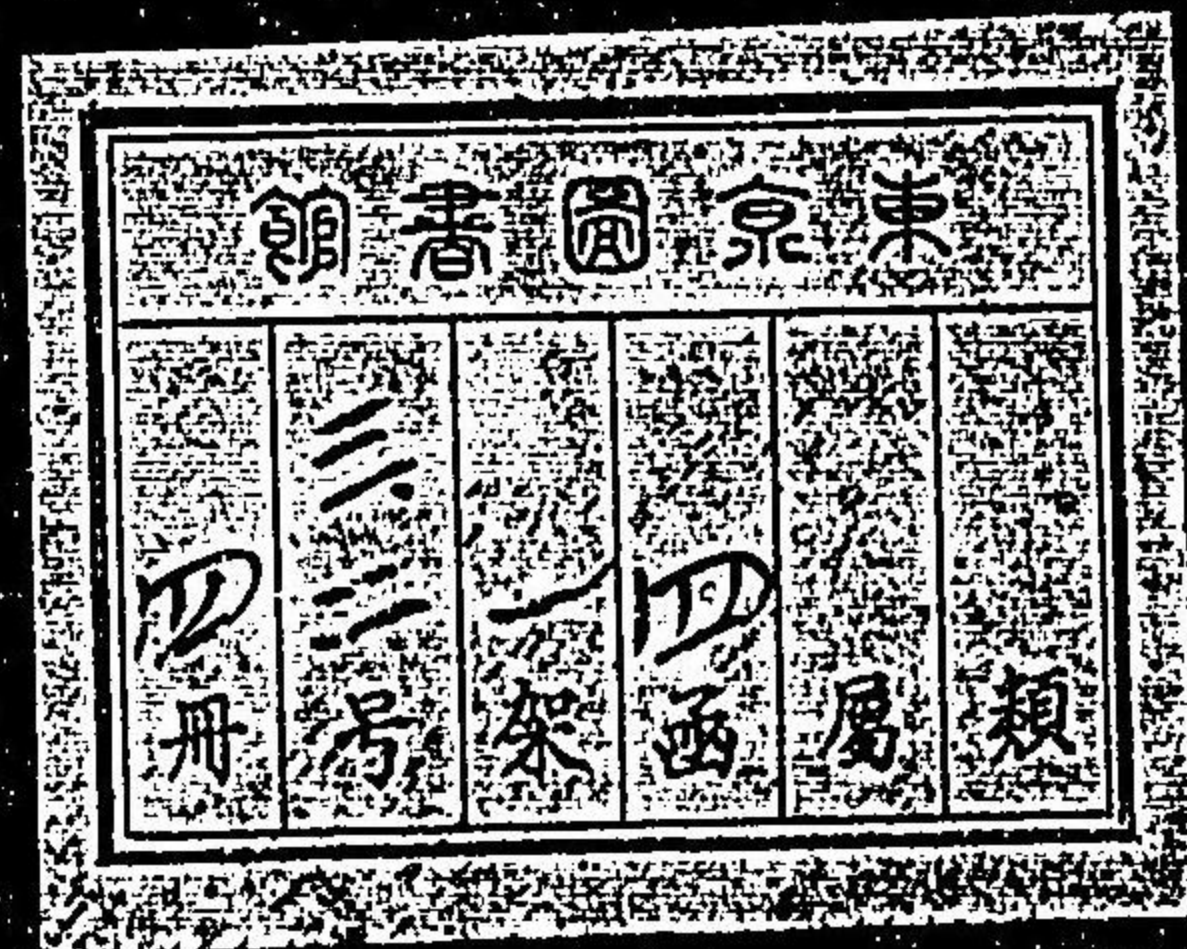 東京圖書館
類
屬
四函
一架
三二号
四冊